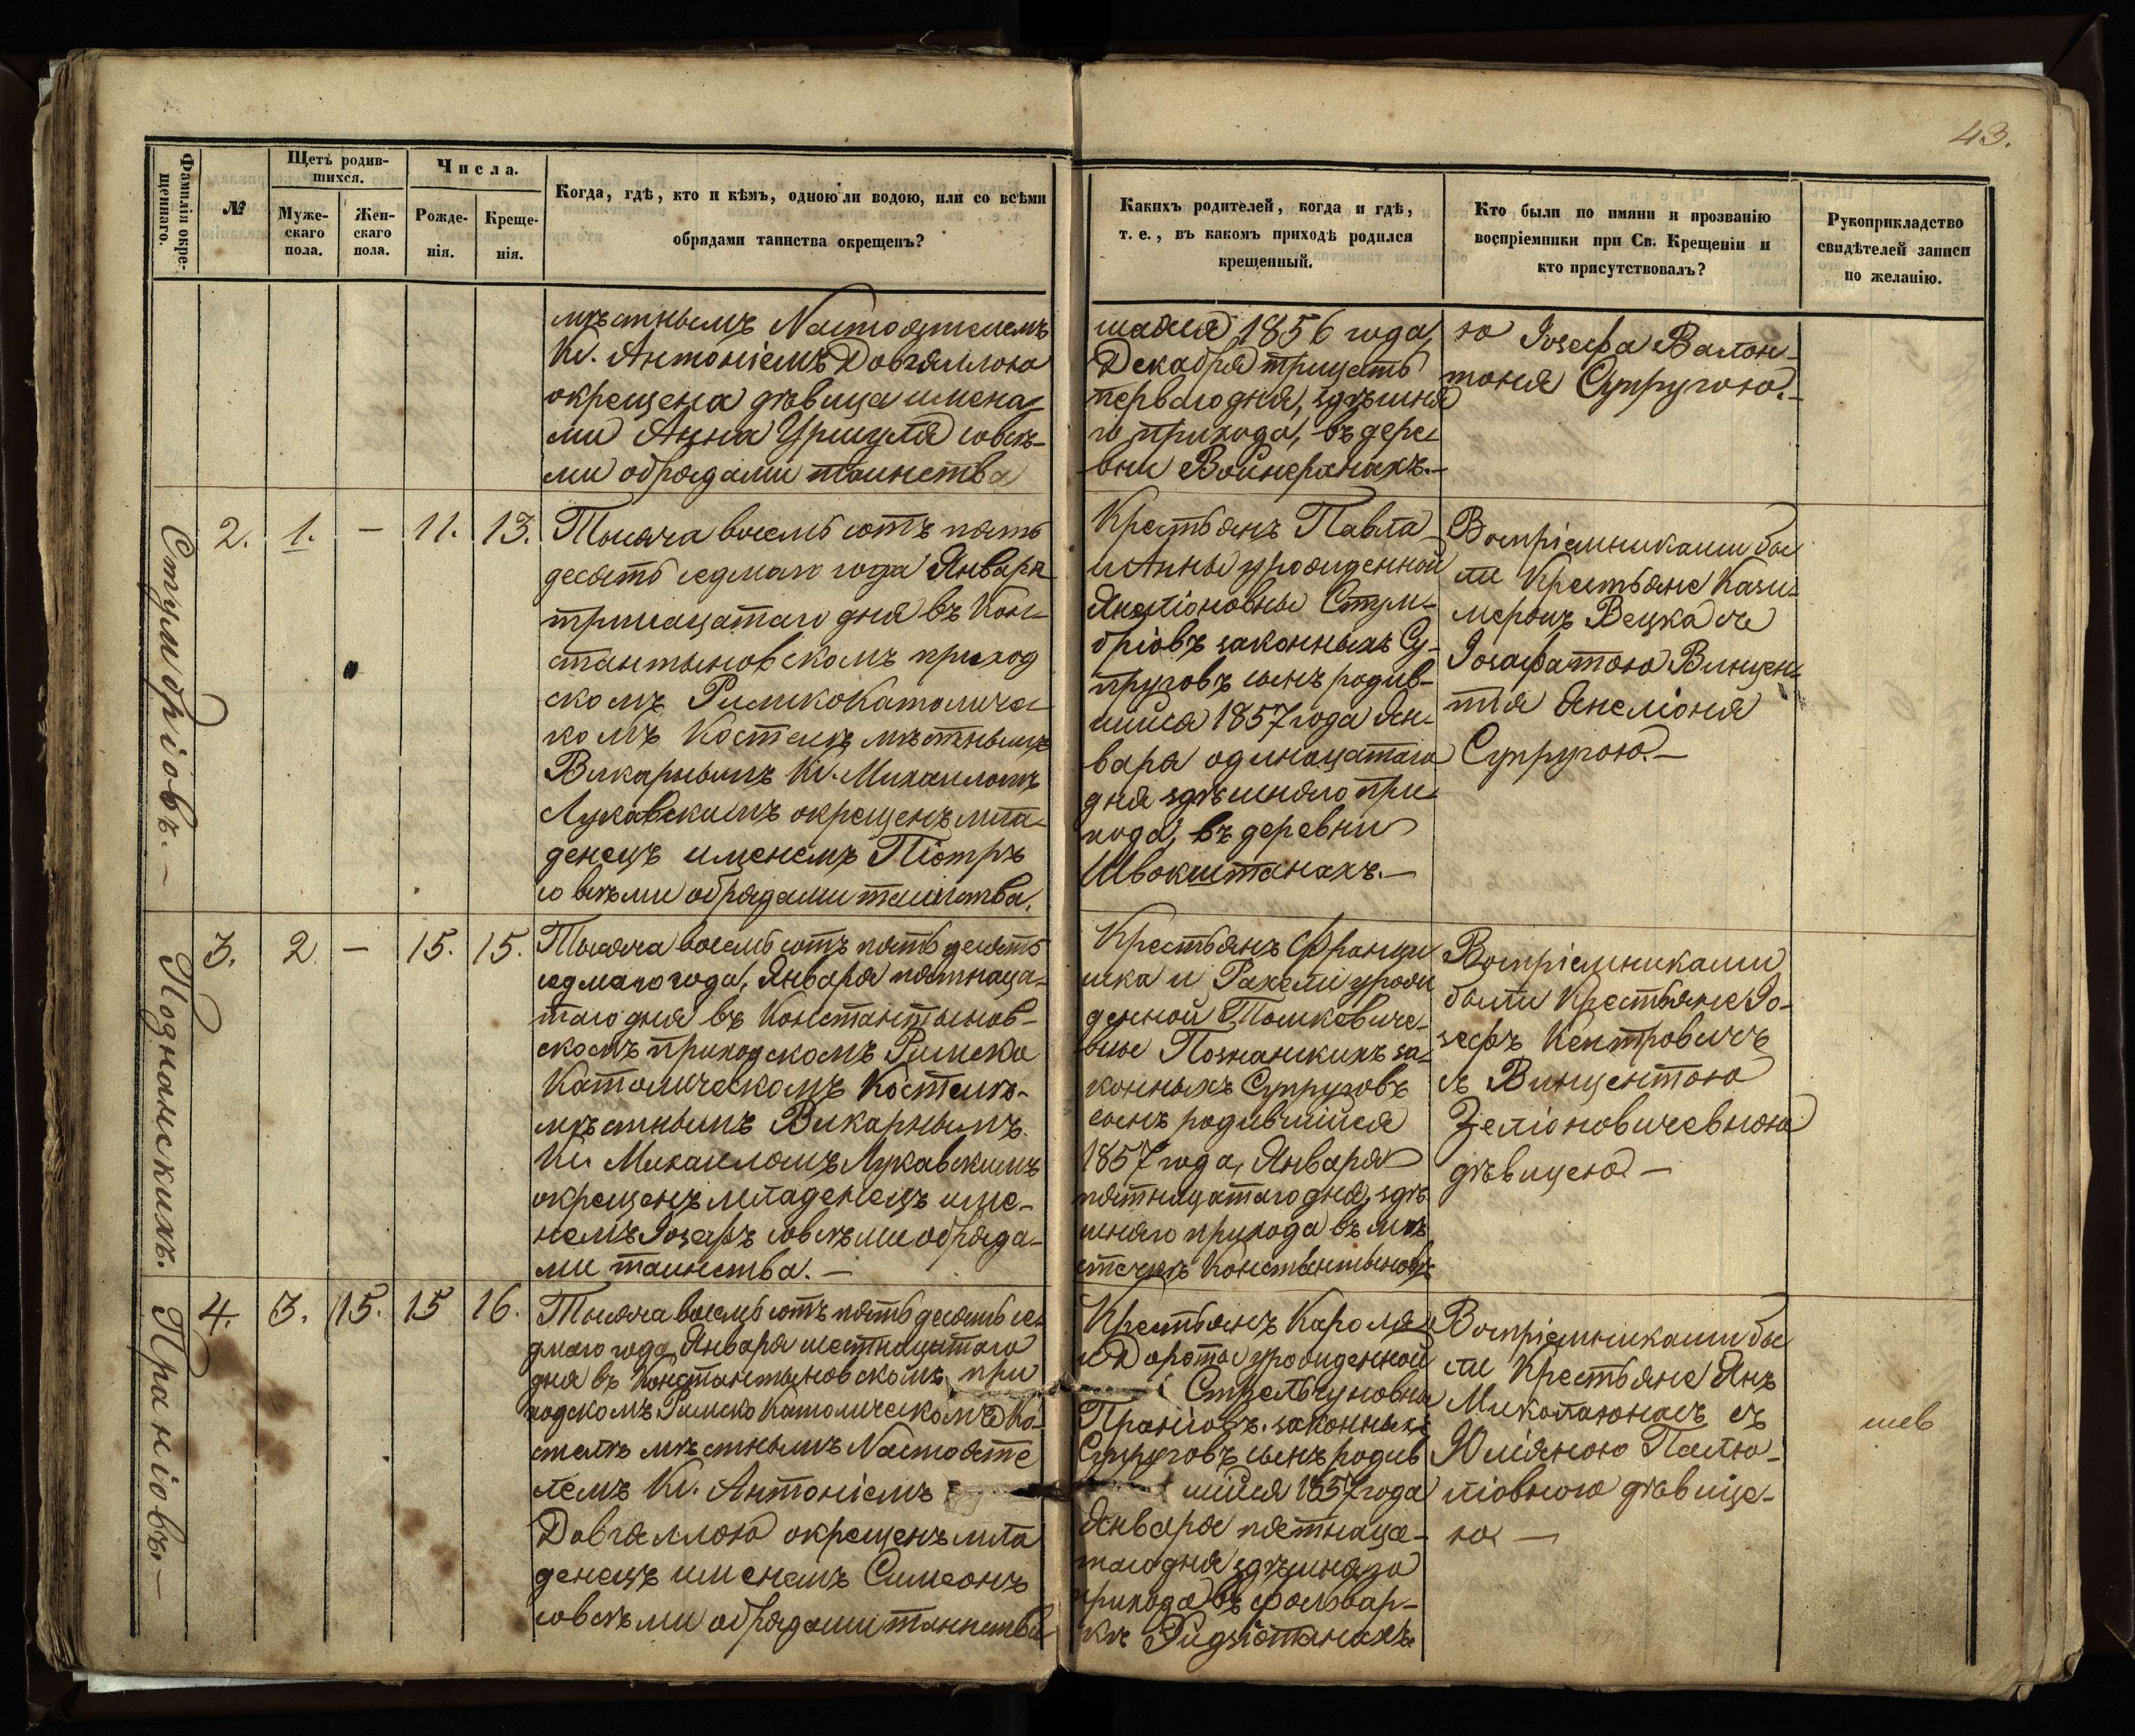 43.
Фамилія окре-
щеннаго.
№
Щетъ родив-
шихся.
Муже-
скаго
пола.
Жен-
скаго
пола.
Числа.
Рожде-
нія.
Креще-
нія.
Когда, гдѣ, кто и кѣмъ, одною ли водою, или со всѣми
обрядами таинства окрещенъ?
Какихъ родителей, когда и гдѣ,
т. е., въ какомъ приходѣ родился
крещенный.
Кто были по имяни и прозванію
воспріемники при Св. Крещеніи и
кто присутствовалъ?
Рукоприкладство
свидѣтелей записи
по желанію.
мѣстнымъ Настоятелемъ
Кс. Антоніемъ Довгяллою
окрещена дѣвица имена-
ми Анна Уршуля совсѣ-
ми обрядами таинства
шаяся 1856 года,
Декабря трицать
перваго дня, здѣшня
го прихода, въ дере-
вни Войнеранахъ.-
ю Іозефа Валон-
тоня Супругою.-
Стумбріовъ.-
2. 1. - 11. 13.
Тысяча восемь сотъ пять
десятъ седмаго года Января
тринацатаго дня въ Кон-
стантыновскомъ приход
скомъ РимскоКатоличе-
комъ Костелѣ мѣстнымъ
Викарнымъ Кс. Михаиломъ
Лукавскимъ окрещенъ мла-
денецъ именемъ Піотръ
со всѣми обрядами таинства.
Крестьянъ Павла
и Анны урожденной
Янеліоновны Стум-
бріовъ законныхъ Су-
пруговъ сынъ родив-
шійся 1857 года Ян-
варя одинацатаго
дня здѣшняго при-
хода, въ деревни
Швокштанахъ.-
Воспріемниками бы
ли Крестьяне Кази-
меръ Вецка съ
Іозафатою Винцен-
тія Янеліоня
Супругою.-
Познанскихъ.
3. 2 - 15. 15.
Тысяча восемь сотъ пять десятъ
седмаго года, Января пятнаца-
таго дня въ Константынов-
скомъ приходскомъ Римско
Католическомъ Костелѣ-
мѣстнымъ Викарнымъ
Кс. Михаиломъ Лукавскимъ
окрещенъ младенецъ име-
немъ Іозефъ совсѣми обряда-
ми таинства.-
Крестьянъ Франци
шка и Рахели урож
денной Томкевиче-
вны Познанскихъ за-
конныхъ Супруговъ
сынъ родившійся
1857 года, Января
пятнацатаго дня, здѣ
шняго прихода въ мѣ
стечкѣ Константыновѣ
Воспріемниками
были Крестьяне Іо-
зефъ Кентровичъ
съ Винцентою
Зеліоновичевною
дѣвицею-
Праніовъ.-
4. 3. 15. 15 16.
Тысяча восемь сотъ пять десятъ се-
дмаго года, Января шестнацатаго
дня въ Константыновскомъ при
ходскомъ Римско Католическомъ Ко-
стелѣ мѣстнымъ Настояте
лемъ Кс. Антоніемъ
Довгяллою окрещенъ мла
денецъ именемъ Симеонъ
совсѣми обрядами таинства
Крестьянъ Кароля
и Дороты урожденной
Стрельчуновны
Праніовъ законныхъ
Супруговъ сынъ родив
шійся 1857 года
Января пятнаца-
таго дня здѣшняго
прихода въ фольвар-
кѣ
Воспріемниками бы
ли Крестьяне Янъ
Миколаюнасъ съ
Юліяною Палю-
ліовною дѣвице-
ю -